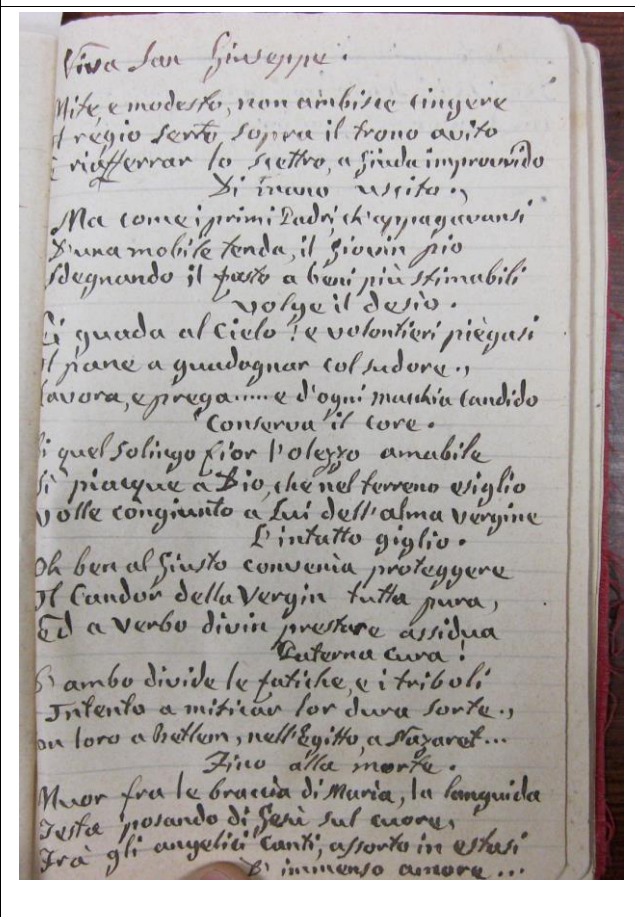 Viva San Giuseppe.
Mite e modesto, non ambisce cingere
Il regio serto sopra il trono avito
E riafferrar lo scettro, a Giuda improvvido
Di mano uscito.,
Ma come i primi Padri, ch'appagavansi
D'una mobile tenda, il giovin pio
Sdegnando il fasto a beni più stimabili
Volge il desio.
Ei guada al Cielo! e volontieri piègasi
Il pane a guadagnar col sudore.,
Lavora, e prega...... e d'ogni macchia candido
Conserva il core.
Di quel Solingo fior l'olezzo amabile
Sì piacque a Dio, che nel terreno esiglio
Volle congiunto a Lui dell'alma Vergine
L'intatto giglio.
Oh ben al Giusto convenìa proteggere
Il Candor della Vergin tutta pura,
Ed a Verbo divin prestare assidua
Paterna cura!
D'ambo divide le fatiche, e i triboli
Intento a miticar lor dura sorte.,
Con loro a Betlem, nell'Egitto, a Nazaret...
Fino alla morte.
Muor fra le braccia di Maria, la languida
Testa posando di Gesù sul cuore,
Frà gli angelici Canti, assorto in estasi
D'immenso amore...